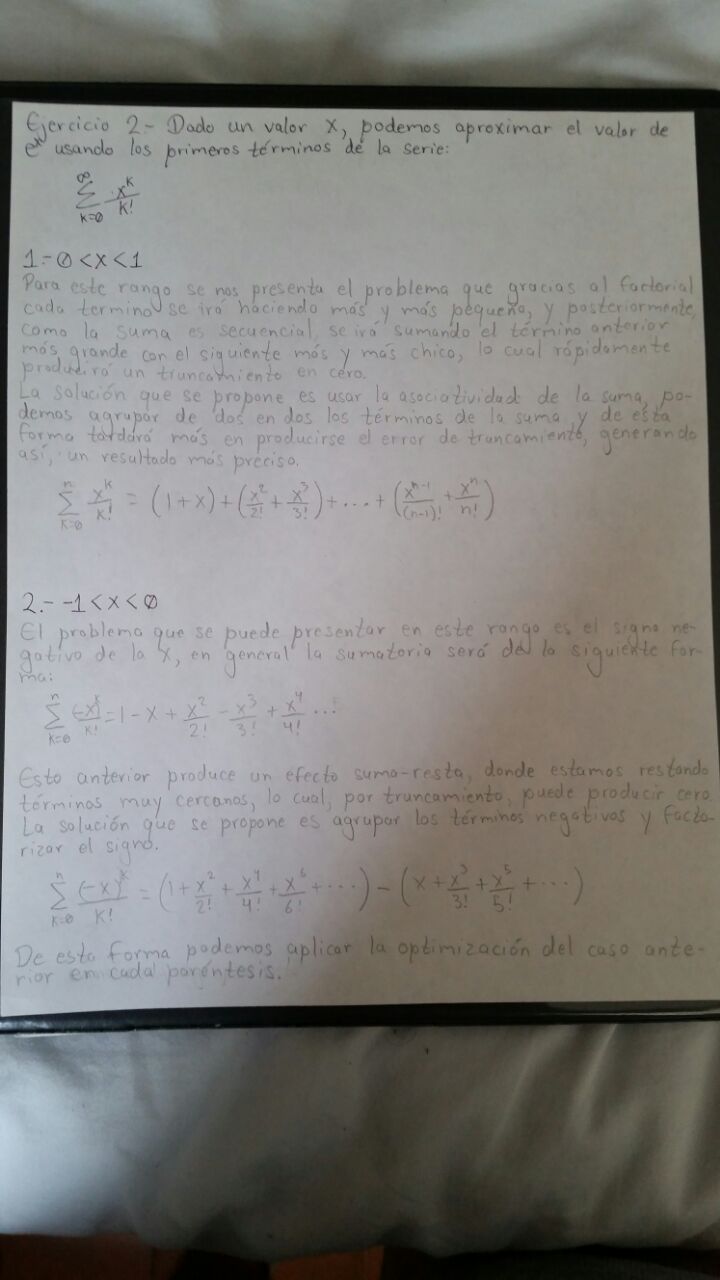 Ejercicio 2.- Dado un valor x, podemos aproximar el valor de
e^x usando los primeros términos de la serie:
∑_{k=0}^{∞} x^k/k!
1.- 0 < x < 1
Para este rango se nos presenta el problema que gracias al factorial
cada termino se irá haciendo más y más pequeño, y posteriormente,
como la suma es secuencial, se irá sumando el término anterior
más grande con el siguiente más y más chico, lo cual rápidamente
producirá un truncamiento en cero.
La solución que se propone es usar la asociatividad de la suma, po-
demos agrupar de dos en dos los términos de la suma y de esta
forma tardará más en producirse el error de truncamiento, generando
así, un resultado más preciso.
∑_{k=0}^{n} x^k/k! = (1+x) + (x^2/2! + x^3/3!) + ... + (x^{n-1}/(n-1)! + x^n/n!)
2.- -1 < x < 0
El problema que se puede presentar en este rango es el signo ne-
gativo de la x, en general la sumatoria será de la siguiente for-
ma:
∑_{k=0}^{n} (-x)^k/k! = 1 - x + x^2/2! - x^3/3! + x^4/4! ...
Esto anterior produce un efecto suma-resta, donde estamos restando
términos muy cercanos, lo cual, por truncamiento, puede producir cero.
La solución que se propone es agrupar los términos negativos y facto-
rizar el signo.
∑_{k=0}^{n} (-x)^k/k! = (1 + x^2/2! + x^4/4! + x^6/6! + ...) - (x + x^3/3! + x^5/5! + ...)
De esta forma podemos aplicar la optimización del caso ante-
rior en cada paréntesis.